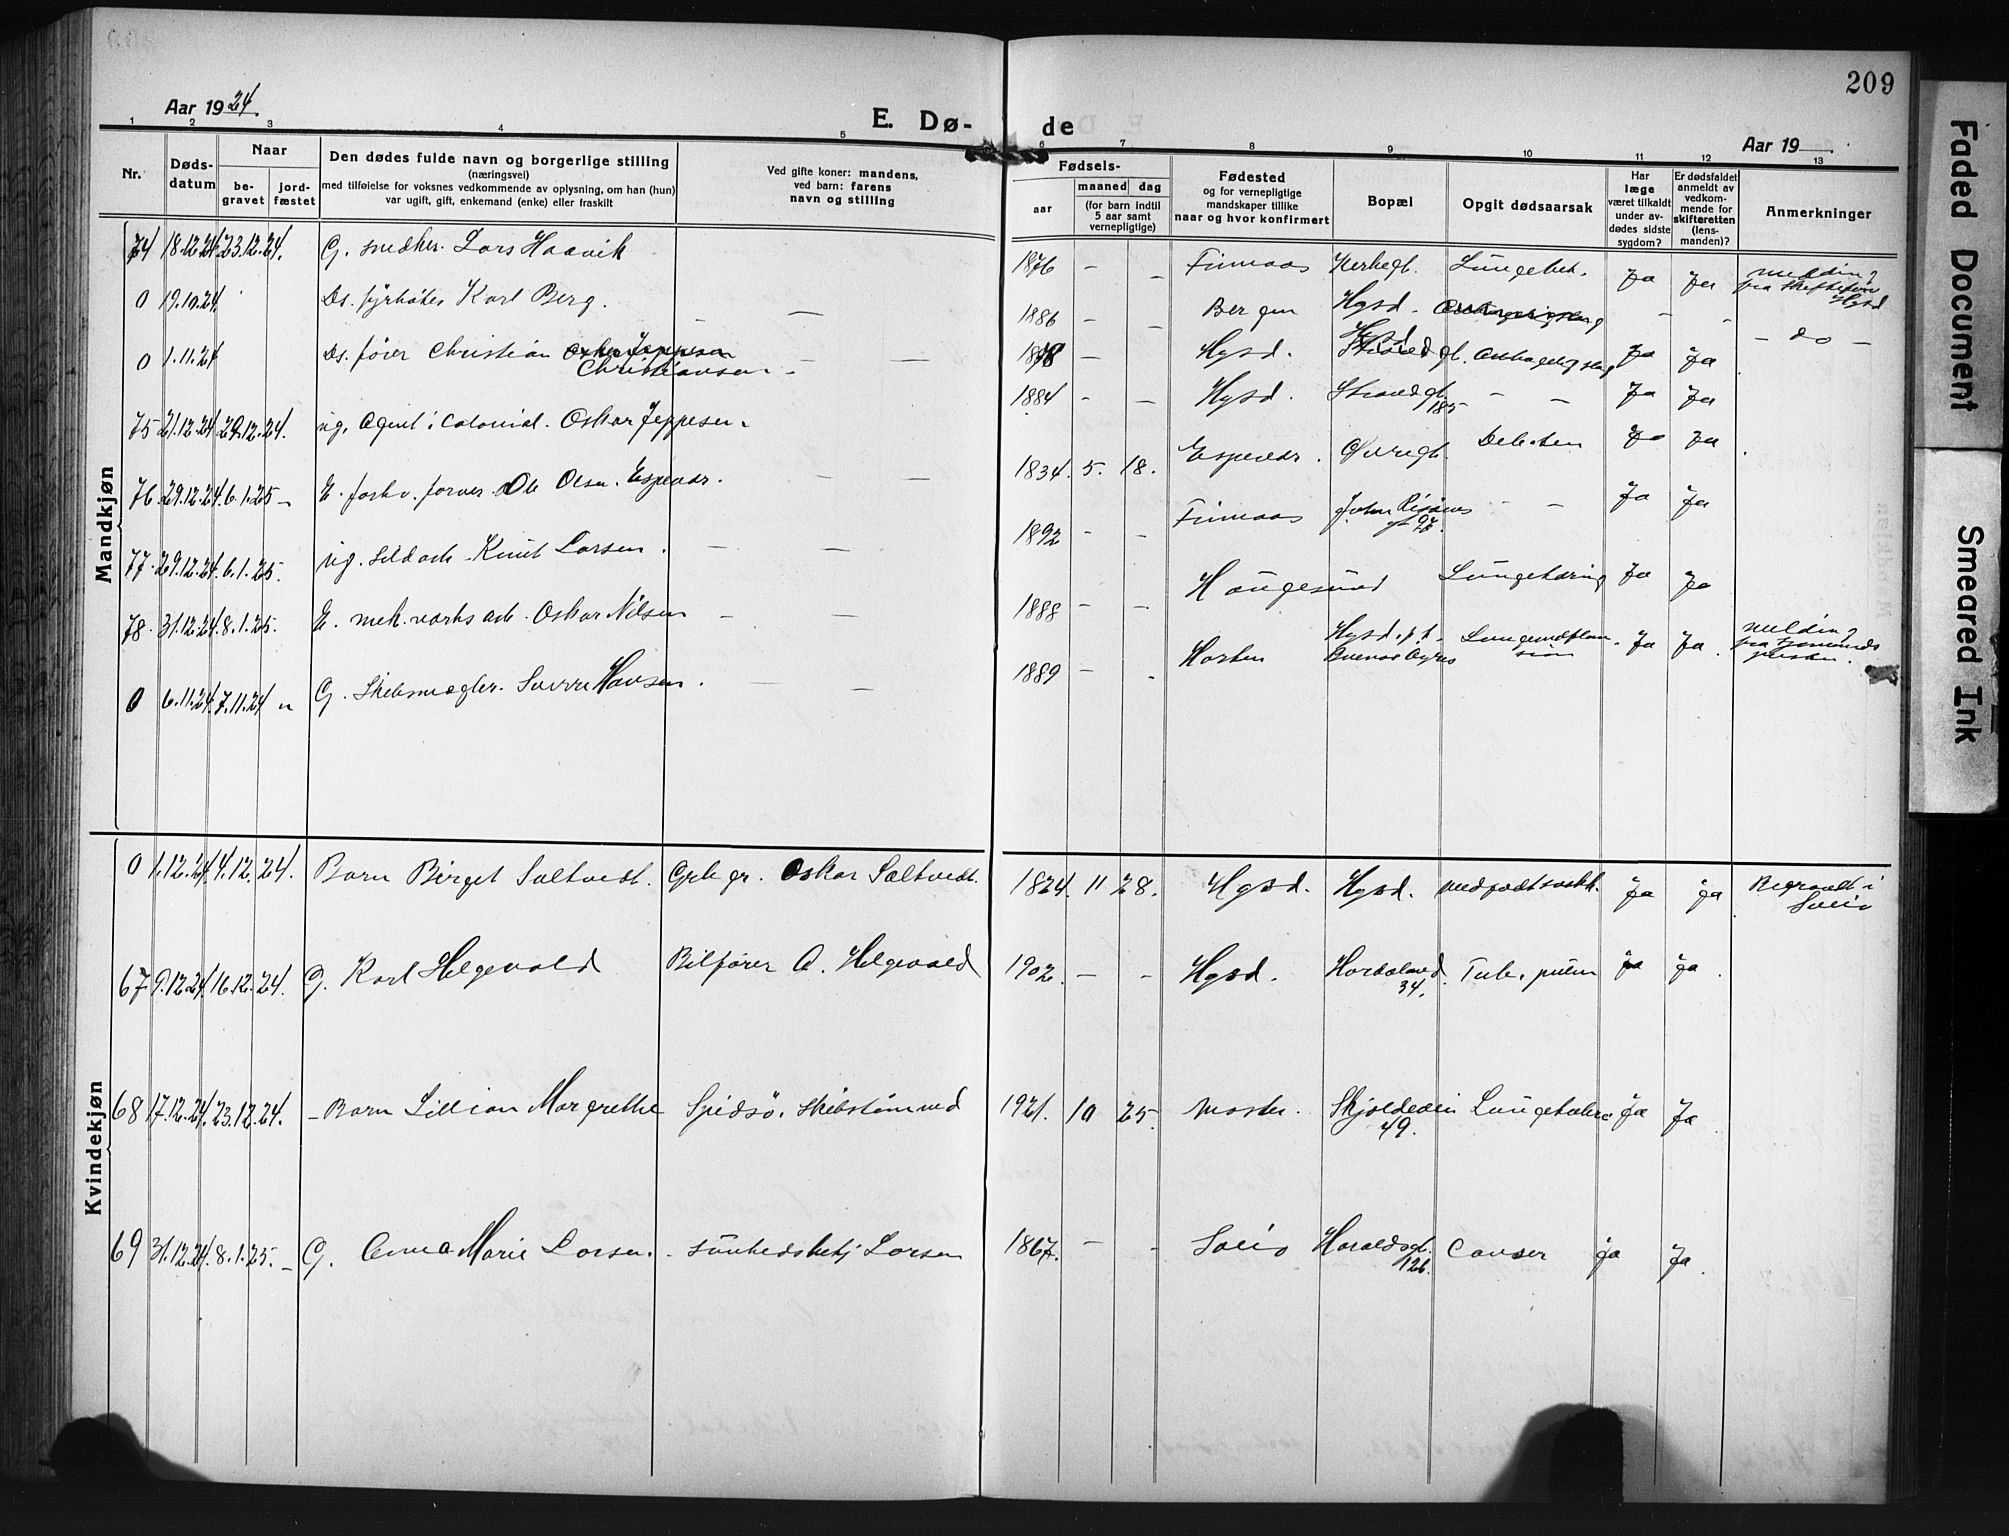 209
Aar 1924.
E. Dø- de
Aar 19
1 2 3 4 5 6 7 8 9 10 11 12 13
Nr.
Døds-
datum
Naar
be-
gravet
jord-
fæstet
Den dødes fulde navn og borgerlige stilling
(næringsvei)
med tilføielse for voksnes vedkommende av oplysning, om han (hun)
var ugift, gift, enkemand (enke) eller fraskilt
Ved gifte koner: mandens,
ved barn: farens
navn og stilling
Fødsels-
aar
maaned dag
(for barn indtil
5 aar samt
vernepligtige)
Fødested
og for vernepligtige
mandskaper tillike
naar og hvor konfirmert
Bopæl
Opgit dødsaarsak
Har
læge
været tilkaldt
under av-
dødes sidste
sygdom?
Er dødsfaldet
anmeldt av
vedkom-
mende for
skifteretten
(lens-
manden)?
Anmerkninger
Mandkjøn
74 18.12.24 23.12.24. G. snedker. Lars Haavik 1876 – – Finnaas Kirkegt. Lungebet. Ja Ja melding
fra skifteretten
Hgsd
0 19.10.24 Ds. fyrbøter Karl Berg. – – 1886 – – Bergen Hgsd. – – – do –
0 1.11.24 Ds. fører Christian
Christiansen – – – 1878 – Hgsd. Hgsd Ja Ja
75 21.12.24 29.12.24. ug. Agent i Colonial. Oskar Jeppesen. 1884 – – Hgsd. Strandgt.
185 – – Ja Ja
76 29.12.24 6.1.25 – E. forhv. farver. Ole Olsen. Espevær. – – 1834. 5. 18. Espevær. Øvregt. Ja Ja
77. 29.12.24. 6.1.25. ug. Sildarb. Knut Larsen. – – 1892 – – Finnaas – – Ja Ja
78. 31.12.24. 8.1.25. E. mek. verks arb. Oskar Nilsen – – 1888 – – Haugesund Lungetæring Ja Ja
0 6.11.24. 7.11.24 G. Skibsmægler. Sverre Hansen. – – 1889 – Horten Hgsd. p.t.
Buenos Ayres Ja Ja. melding
fra
Kvindekjøn
0 1.12.24. 4.12.24. Barn Birget Saltvedt. Oskar Saltvedt. 1824. 11 28. Hgsd. Hgsd. medfødt svakh. Ja ja Begravet i
Sveio
67 9.12.24. 16.12.24. G. Karl Helgevold Bilfører A. Helgevold 1902. – – Hgsd. Hordaland.
34. Tub. pulm ja ja.
68 17.12.24. 23.12.24. – Barn Lillian Margrethe Spidsö. Skibstømmed 1921. 10 25. Moster. Skjoldeveien
49. ja Ja
69 31.12.24. 8.1.25. – G. Anna Marie Larsen. Larsen 1867. – – Sveio Haraldsgt.
126. Cancer ja Ja.
Faded Document
Smeared Ink